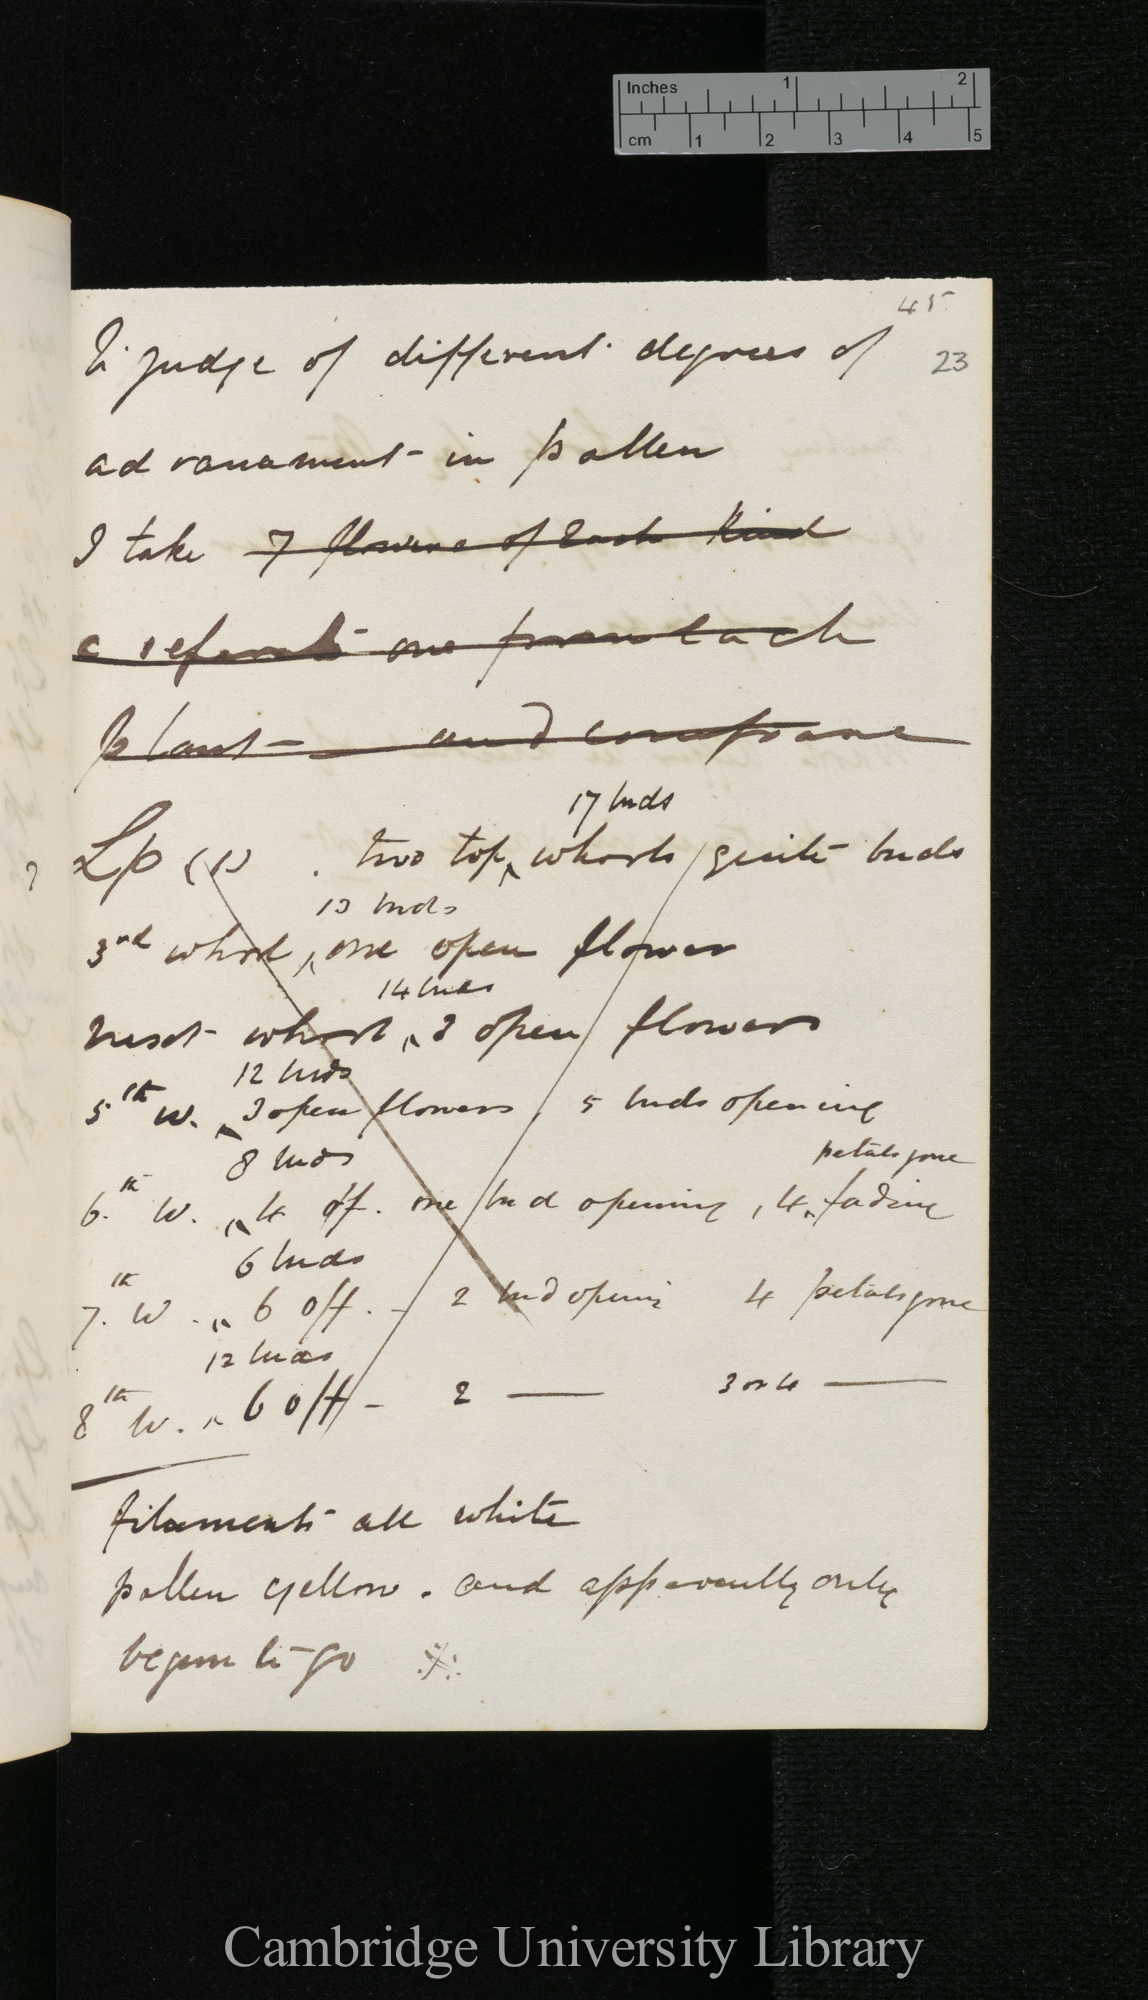 Inches 1 2
cm 1 2 3 4 5
45
23
To judge of different degrees of
advancement in pollen
I take 7 flowers of each kind
one from each
plant — and compare
17 buds
Lp (1). two top ‸ whorls quite buds
13 buds
3rd whorl, ‸ one open flower
14 buds
next whorl, ‸ 2 open flowers
12 buds
5th w. ‸ 3 open flowers, 5 buds opening
8 buds petals gone
6th w. ‸ 4 off. one bud opening, 4 ‸ fading
6 buds
7th w. ‸ 6 off. – 2 bud opening 4 petals gone
12 buds
8th w. ‸ 6 off – 2 — 3 or 4 —
filaments all white
pollen yellow. and apparently only
begun to go
Cambridge University Library